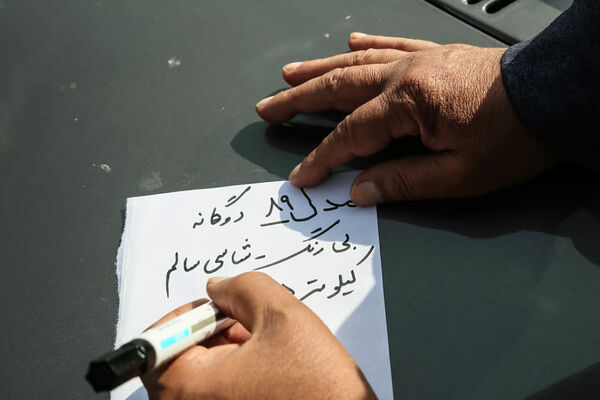 مدل ۸۹ دوگانه
بی رنگ شاسی سالم
کیلومتر